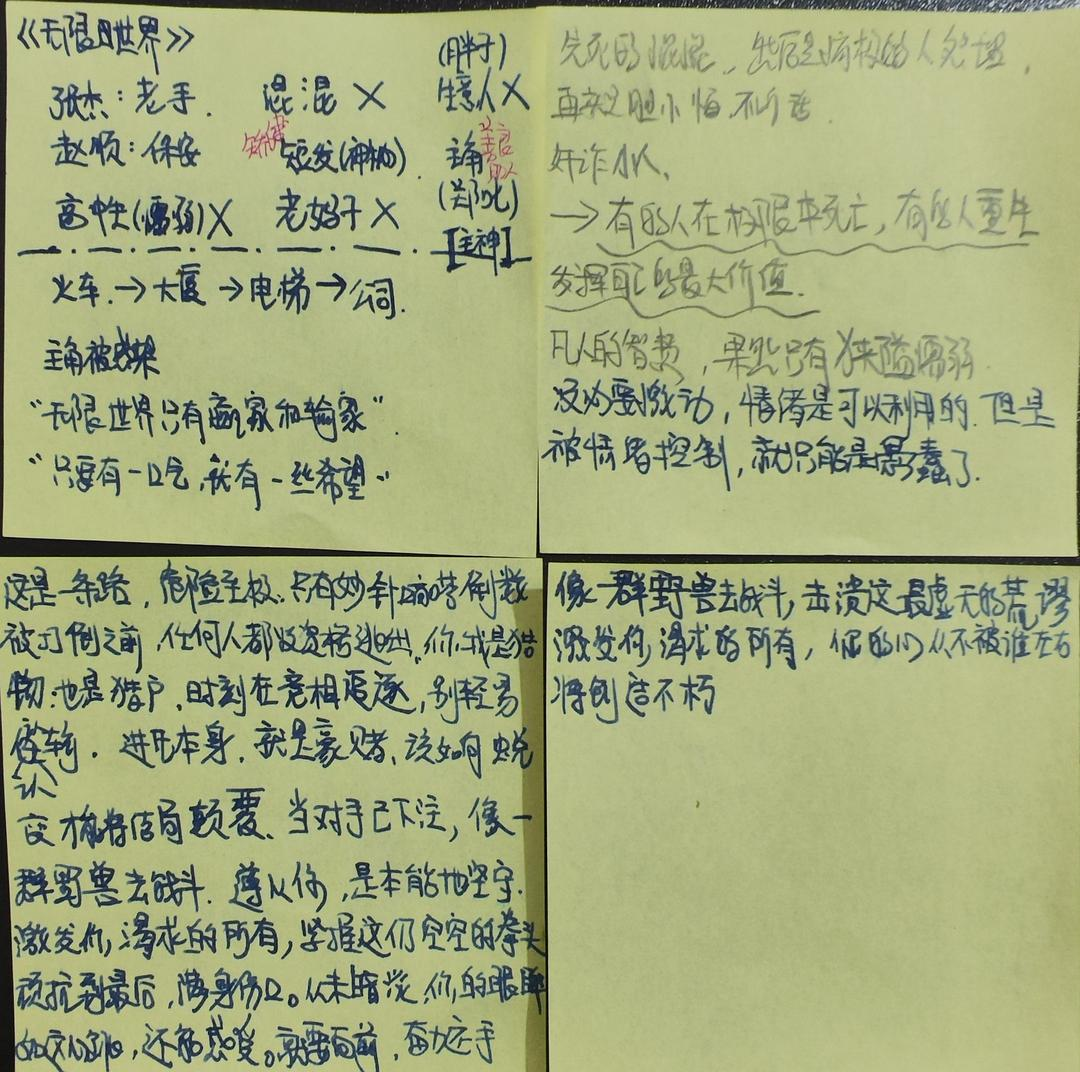 《无限日世界》
(胖子)
张杰：老手. 混混 X 生意人 X
赵顺：保安 短发(神枪). 主角
高中生(懦弱) X 老妈子 X (郑吒)
【主神】
火车 → 大厦 → 电梯 → 公司.
主角被绑架
“无限世界只有赢家和输家”.
“只要有一口气,就有一丝希望”
先死的混混, 然后是 的人
再 胆小怕 不
奸诈小人、
→ 有的人在极限中死亡, 有的人重生
发挥自己的最大价值.
凡人的智慧, 果然只有狭隘懦弱.
没必要激动, 情绪是可以利用的. 但是
被情绪控制, 就只能是愚蠢了.
这是一条路, 危险至极. 只有秒针嘀嗒倒数
被打倒之前, 任何人都没资格逃出. 你我是猎
物. 也是猎户. 时刻在竞相追逐, 别轻易
认输. 进化本身. 就是豪赌、该如何蜕
变才能将结局颠覆、当对手已下注, 像一
群野兽去战斗. 遵从你, 是本能地坚守.
激发你, 渴求的所有, 紧握这们空空的拳头
顽抗到最后, 满身伤口。从未暗淡, 你的眼眸
如 心跳, 还能感受。就要向前, 奋力还手
像一群野兽去战斗, 击溃这最虚无的荒谬
激发你, 渴求的所有, 你的心从不被谁左右
将创造不朽